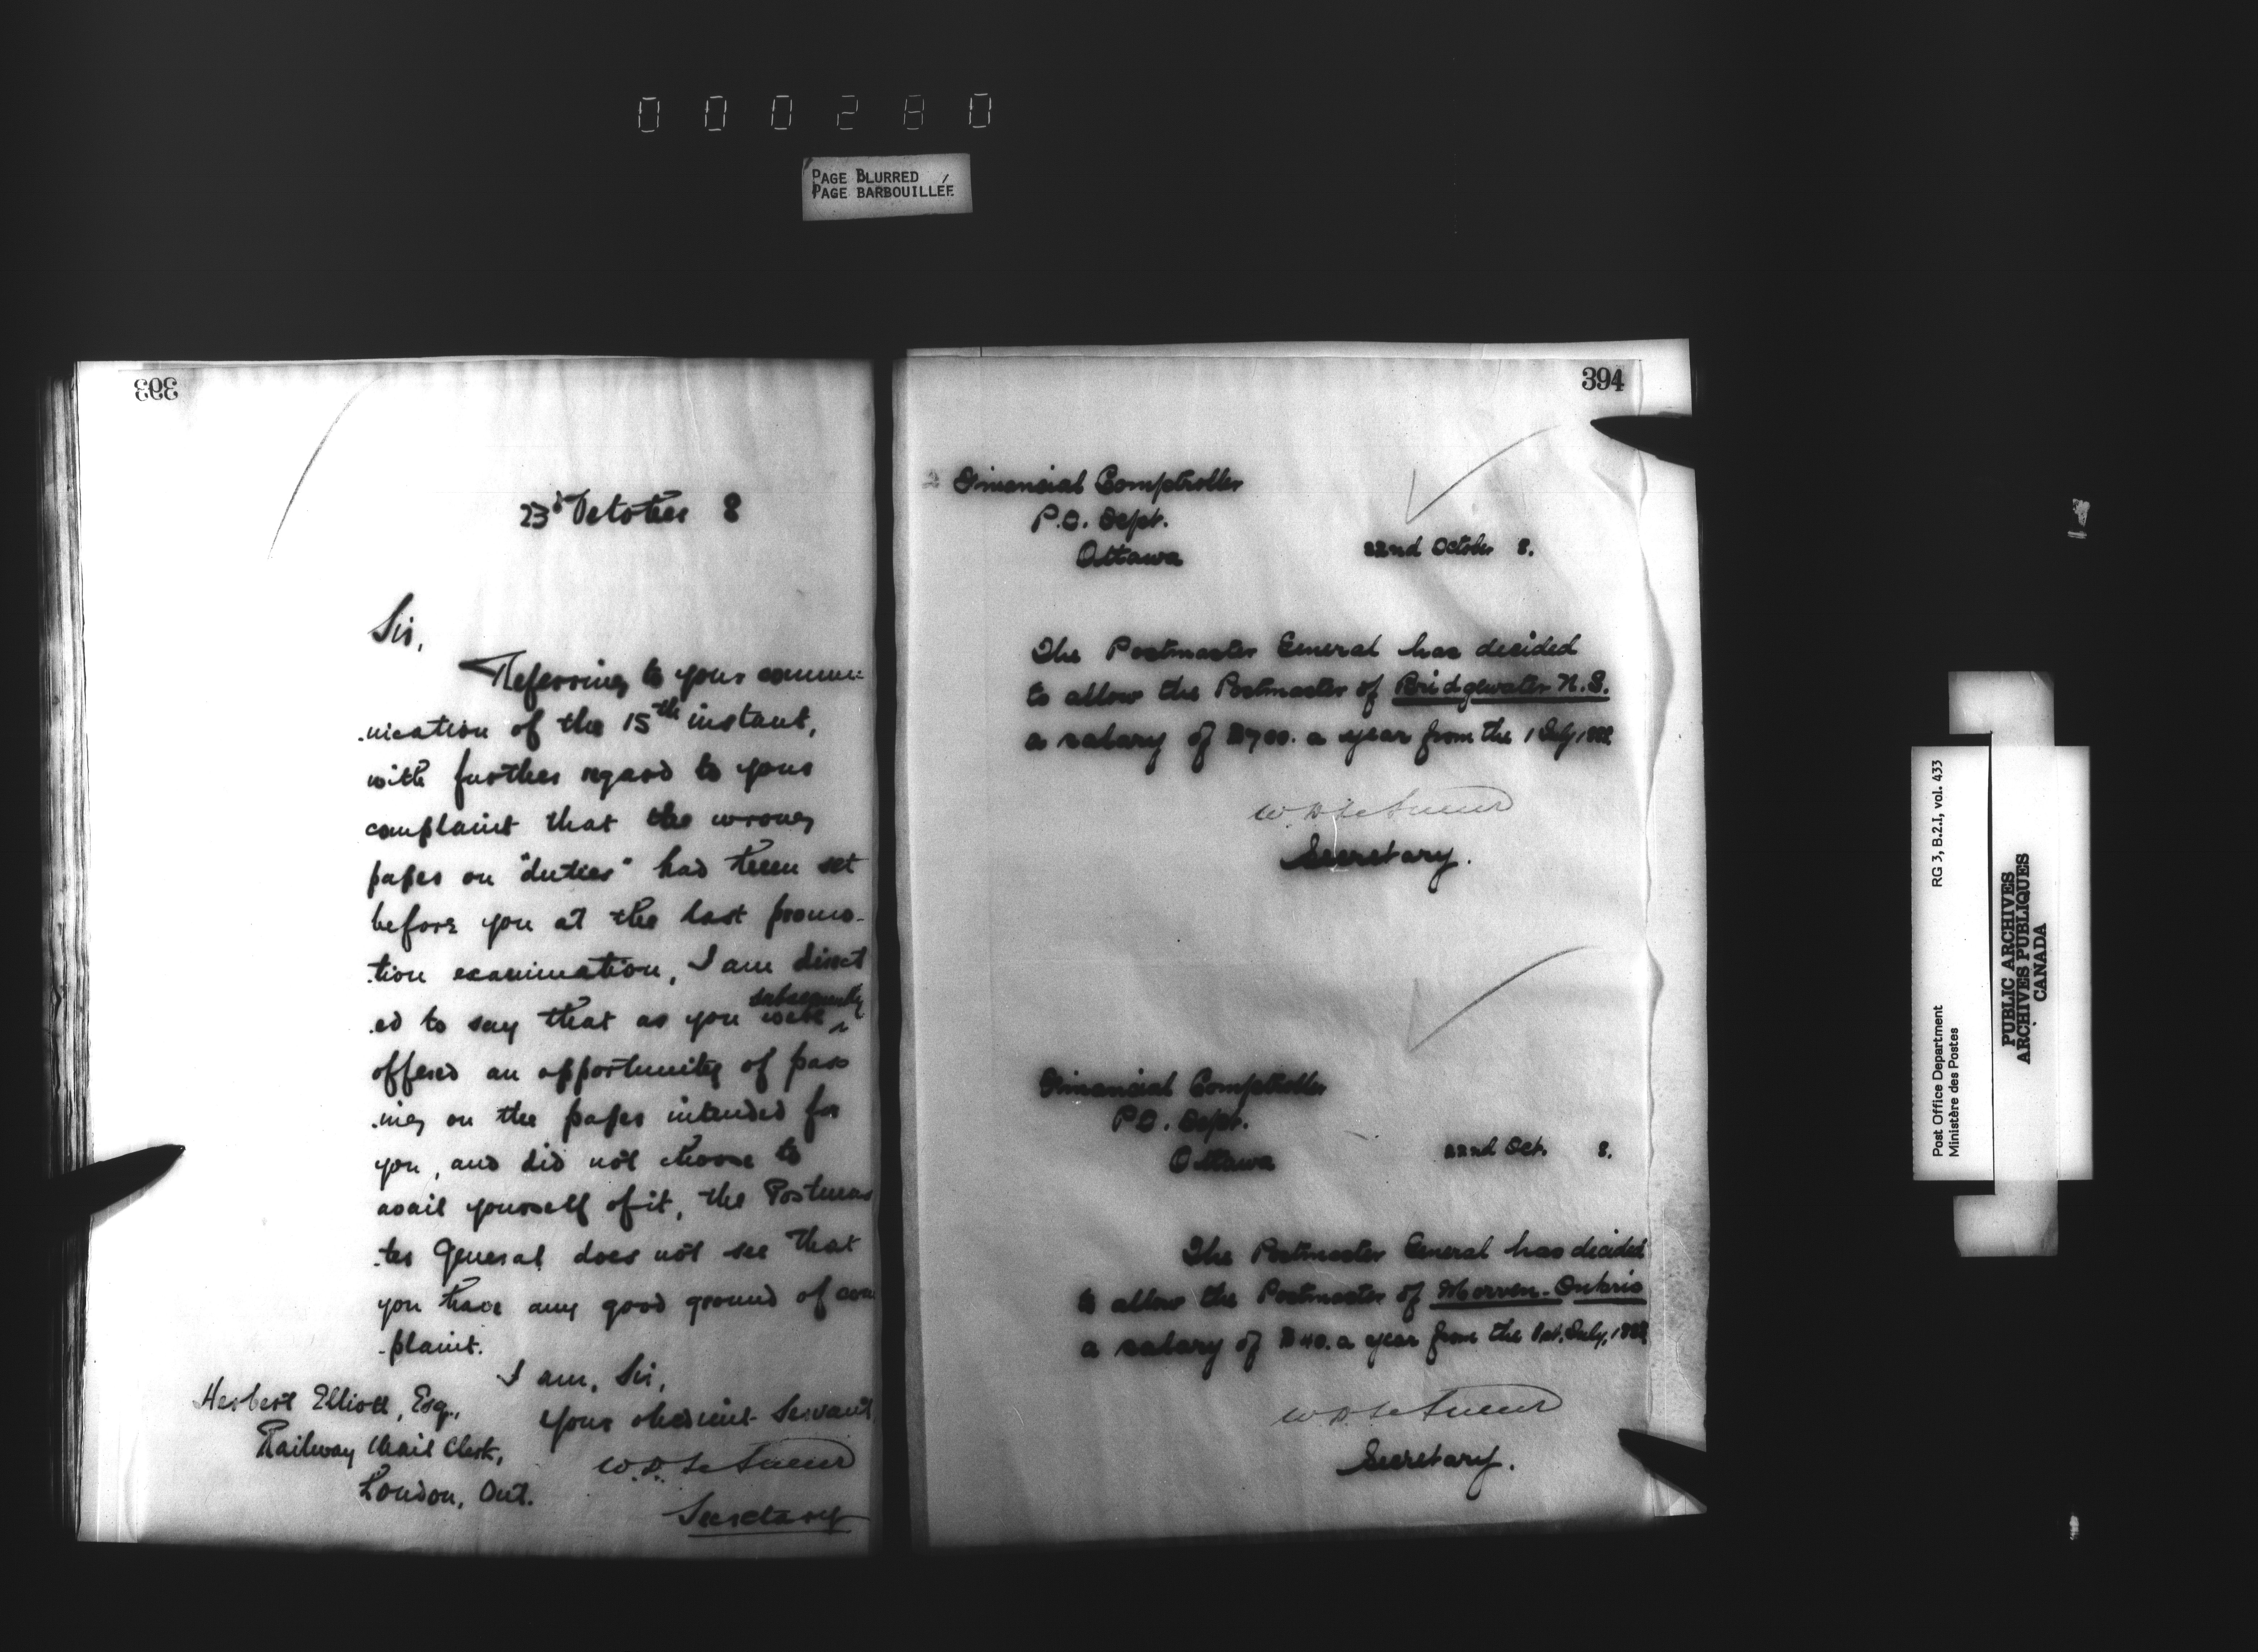 000280
PAGE BLURRED
PAGE BARBOUILLÉE
393
23d October 8
Sir,
Referring to your commu-
.nication of the 15th instant,
with further regard to your
complaint that the wrong
paper on "duties" had been set
before you at the last promo-
.tion examination, I am direct
.ed to say that as you were subsequently
offered an opportunity of pass
.ing on the paper intended for
you, and did not choose to
avail yourself of it, the Postmas
.ter General does not see that
you have any good ground of com
-plaint.
I am, Sir,
Your obedient Servant
W.D. LeSueur
Secretary
Herbert Elliott, Esq.,
Railway Mail Clerk,
London, Ont.
394
Financial Comptroller
P.O. Dept.
Ottawa
22nd October 8.
The Postmaster General has decided
to allow the Postmaster of Bridgewater N.S.
a salary of $700. a year from the 1 July, 1888
W.D. LeSueur
Secretary.
Financial Comptroller
P.O. Dept.
Ottawa
22nd Oct. 8.
The Postmaster General has decided
to allow the Postmaster of Morven-Ontario
a salary of $40. a year from the 1st. July, 1888
W.D. LeSueur
Secretary.
Post Office Department
Ministère des Postes
RG 3, B.2.I, vol. 433
PUBLIC ARCHIVES
ARCHIVES PUBLIQUES
CANADA